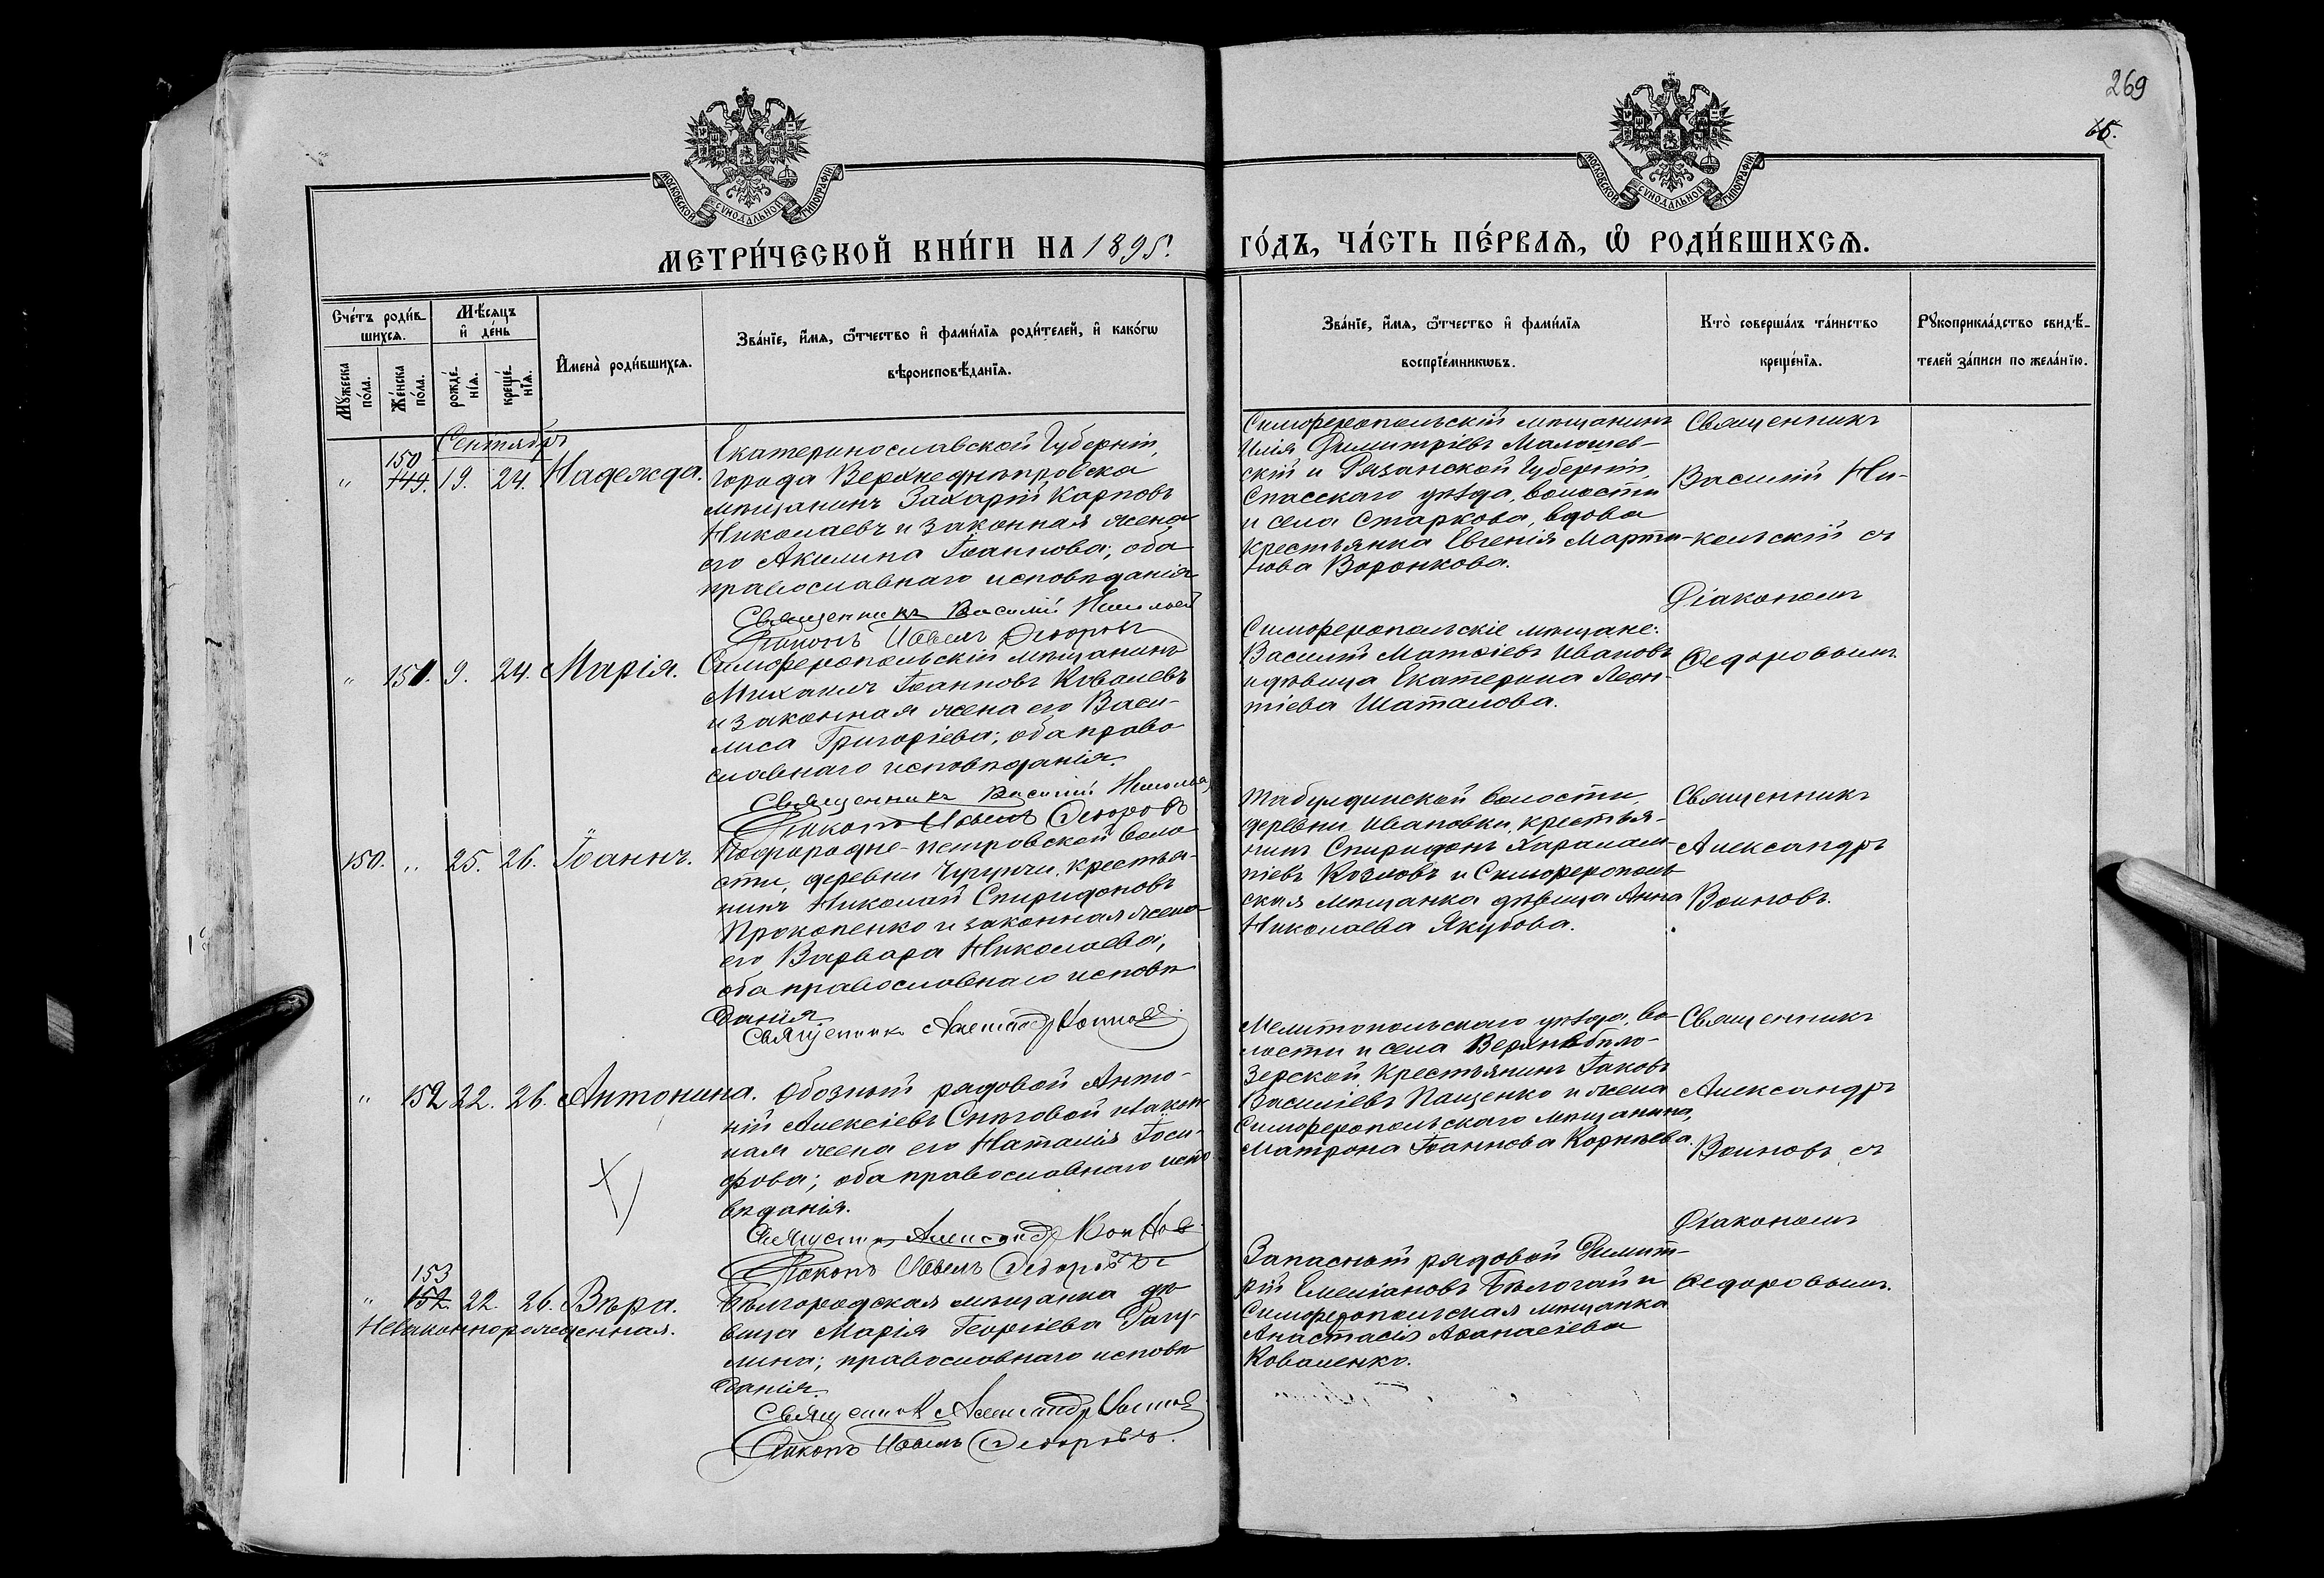 269
66.
МОСКОВСКОЙ СѴНОДАЛЬНОЙ ТИПОГРАФІИ
МОСКОВСКОЙ СѴНОДАЛЬНОЙ ТИПОГРАФІИ
МЕТРИ́ЧЕСКОЙ КНИ́ГИ НА 1895.
ГО́ДЪ, ЧА́СТЬ ПЕ́РВАѦ, Ѡ РОДИ́ВШИХСѦ.
Сче́тъ роди́в-
шихсѧ.
Мꙋ́жеска по́ла.
Же́нска по́ла.
Мѣ́сѧцъ
и҆ де́нь
рожде́-
нїѧ.
креще́-
нїѧ.
И҆мена̀ роди́вшихсѧ.
Зва́нїе, и҆́мѧ, ѻ҆́тчество и҆ фами́лїѧ роди́телей, и҆ како́гѡ
вѣроисповѣ́данїѧ.
Зва́нїе, и҆́мѧ, ѻ҆́тчество и҆ фами́лїѧ
воспрїе́мникѡвъ.
Кто̀ соверша́лъ та́инство
креще́нїѧ.
Рꙋкоприкла́дство свидѣ́-
телей за́писи по жела́нїю.
Сентябрь
"
150
149.
19.
24.
Надежда.
Екатеринославской Губерніи,
города Верхнеднѣпровска
мѣщанинъ Захарій Карповъ
Николаевъ и законная жена
его Акилина Іоаннова; оба
православнаго исповѣданія
Священникъ Василій
Діаконъ Ѳедоровъ
Симферопольскій мѣщанинъ
Илія Димитріевъ Малошев-
скій и Рязанской Губерніи,
Спасскаго уѣзда, волости
и села Старкова, вдова
крестьянка Евгенія Марти-
нова Воронкова.
Священникъ
Василій Ни-
кольскій съ
Діакономъ
Ѳедоровымъ
"
151.
9.
24.
Марія.
Симферопольскій мѣщанинъ
Михаилъ Іоанновъ Ковалевъ
и законная жена его Васи-
лиса Григоріева; оба право
славнаго исповѣданія.
Священникъ Василій
Діаконъ Ѳедоровъ
Симферопольскіе мѣщане:
Василій Матѳіевъ Ивановъ
и дѣвица Екатерина Леон-
тіева Шаталова.
150.
"
25.
26.
Іоаннъ.
Подгородне-петровской воло
сти, деревни Чугунчи, крестья-
нинъ Николай Спиридоновъ
Прокопенко и законная жена
его Варвара Николаева;
оба православнаго исповѣ
данія
Священникъ Александръ Воиновъ
Табулдинской волости,
деревни Ивановки, крестья-
нинъ Спиридонъ Харалам-
піевъ Козловъ и Симферополь
ская мѣщанка дѣвица Анна
Николаева Якубова.
Священникъ
Александръ
Воиновъ.
"
152
22.
26.
Антонина.
Обозный рядовой Анто-
ній Алексіевъ Снѣговой и закон
ная жена его Наталія Іоси-
фова; оба православнаго испо
вѣданія.
Священникъ Александръ Воиновъ
Діаконъ Ѳедоровъ
Мелитопольскаго уѣзда, во-
лости и села Верхнебѣло-
зерской, крестьянинъ Іаковъ
Василіевъ Пащенко и жена
Симферопольскаго мѣщанина,
Матрона Іоаннова Корнѣева.
Священникъ
Александръ
Воиновъ съ
Діакономъ
Ѳедоровымъ.
"
153
152.
22.
26.
Вѣра.
Незаконнорожденная.
Бѣлгородская мѣщанка дѣ
вица Марія Георгіева Рагу-
лина; православнаго исповѣ
данія.
Священникъ Александръ Воиновъ
Діаконъ Ѳедоровъ.
Запасный рядовой Димит-
рій Емеліановъ Бѣлогай и
Симферопольская мѣщанка
Анастасія Аѳанасіева
Коваленко.